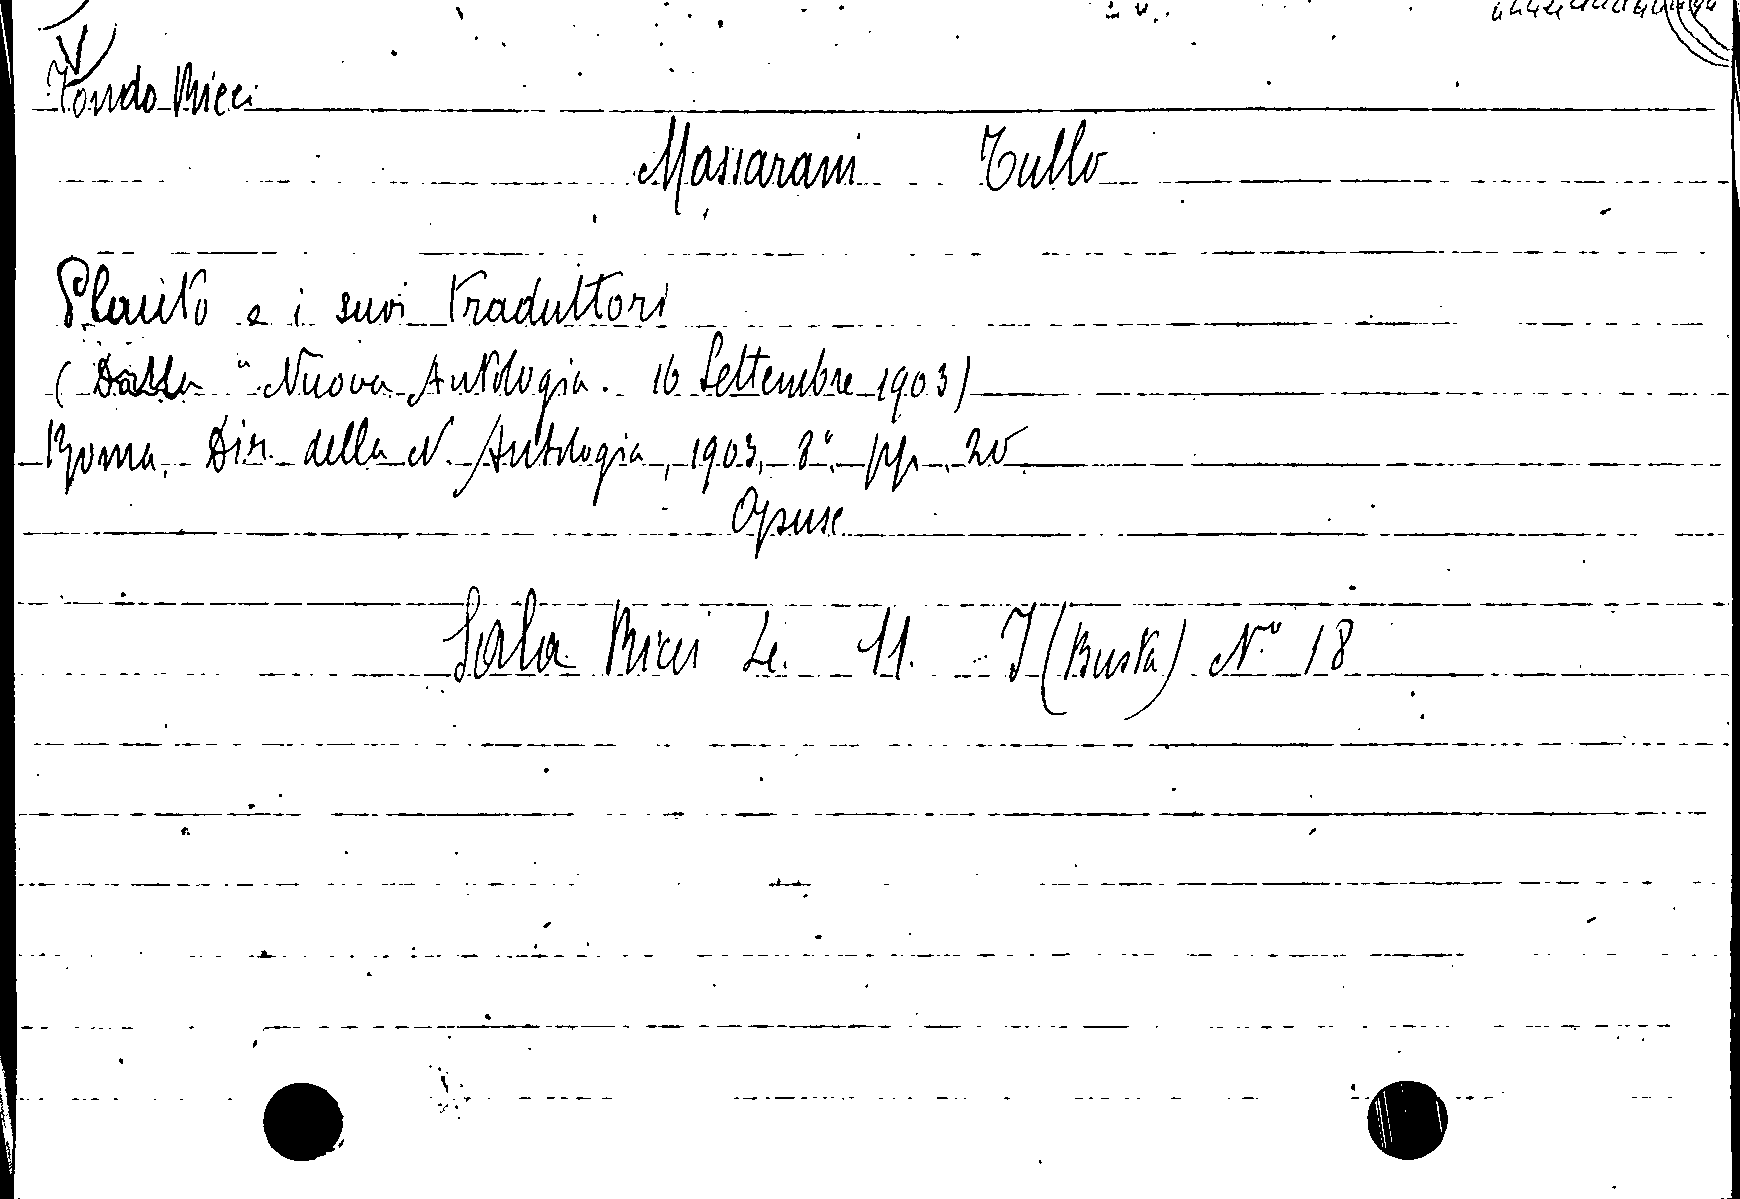 Fondo Ricci
Massarani Tullo
Plauto e i suoi traduttori
(Dalla "Nuova Antologia. 16 Settembre 1903)
Roma, Dir. della N. Antologia, 1903, 8°, pp. 20
Opusc.
Sala Ricci Le. 11. I (Busta) N.° 18